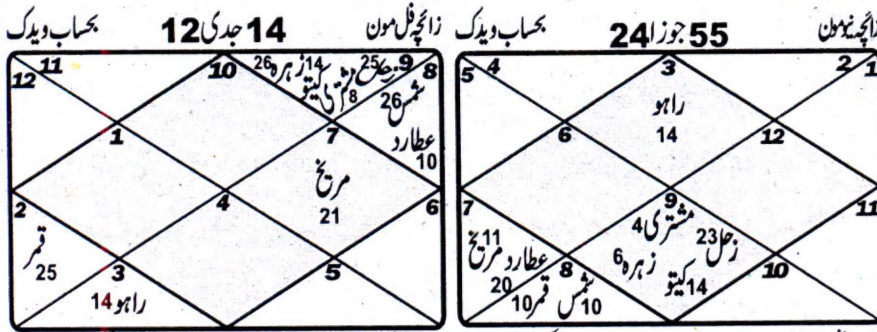 زائچہ نیومون 55 جوزا 24 بحساب ویدک
5 4 3 2 1
راہو
14
6 12
9
7 11
مشتری 4
زحل 23
زہرہ 6
کیتو 14
مریخ 11
عطارد 20
8 10
شمس 10
قمر 10
زائچہ فل مون 14 جدی 12 بحساب ویدک
12 11 10 9 8
زحل 25
مشتری 8
کیتو 14
زہرہ 26
شمس 26
1 7
عطارد
10
مریخ
21
2 4 6
قمر
25
3 5
راہو 14